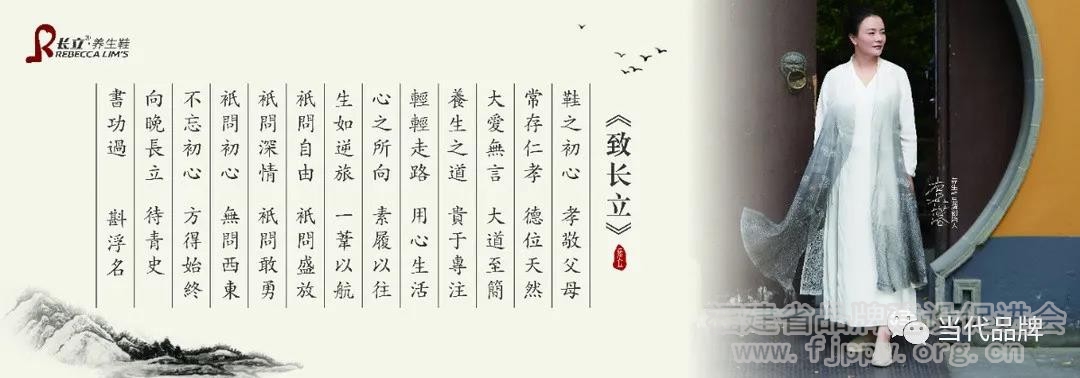 长立·养生鞋
REBECCA LIM'S
《致长立》
鞋之初心 孝敬父母
常存仁孝 德位天然
大愛無言 大道至簡
養生之道 貴于專注
輕輕走路 用心生活
心之所向 素履以往
生如逆旅 一葦以航
祇問自由 祇問盛放
祇問深情 祇問敢勇
祇問初心 無問西東
不忘初心 方得始終
向晚長立 待青史
書功過 斟浮名
福建省品牌建设促进会
www.fjppw.org.cn
当代品牌